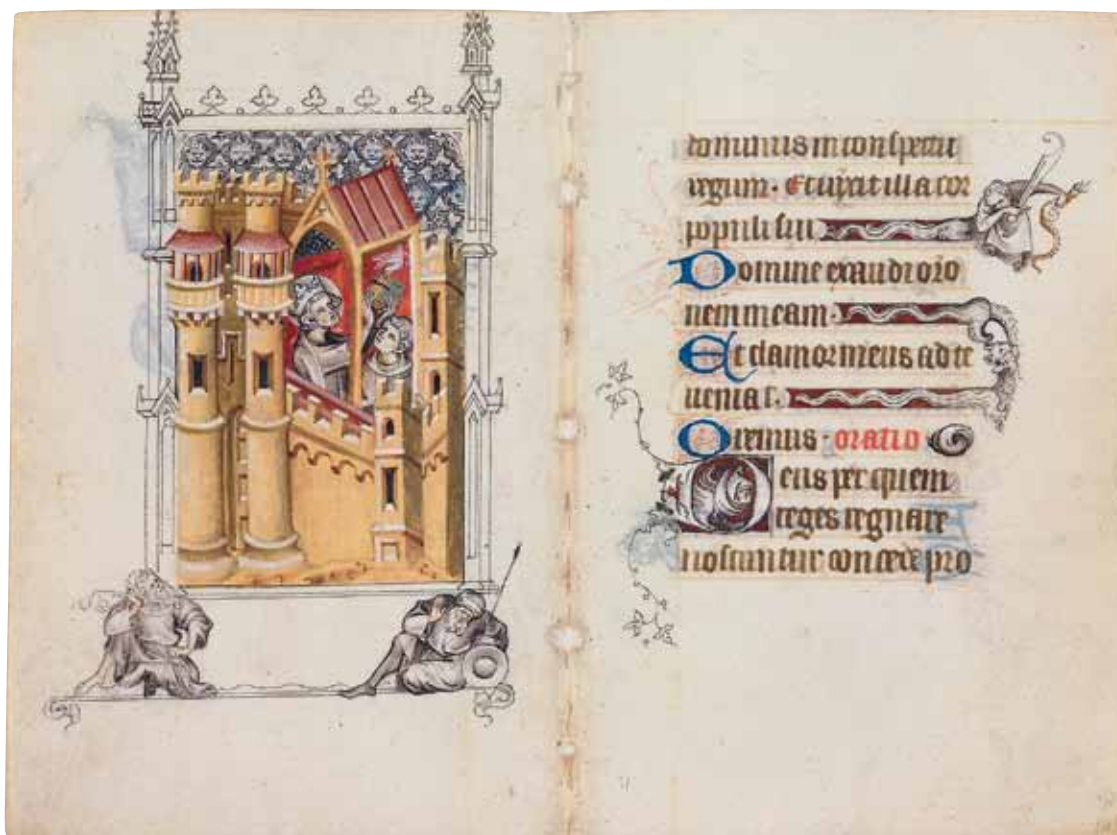 dominus in conspectu
regum. Et illa cor
populi sui
Domine exaudi oro
nem meam.
Et clamor meus ad te
ueniat.
Oremus. oratio
Deus per quem
reges regnare
noscuntur concede pro